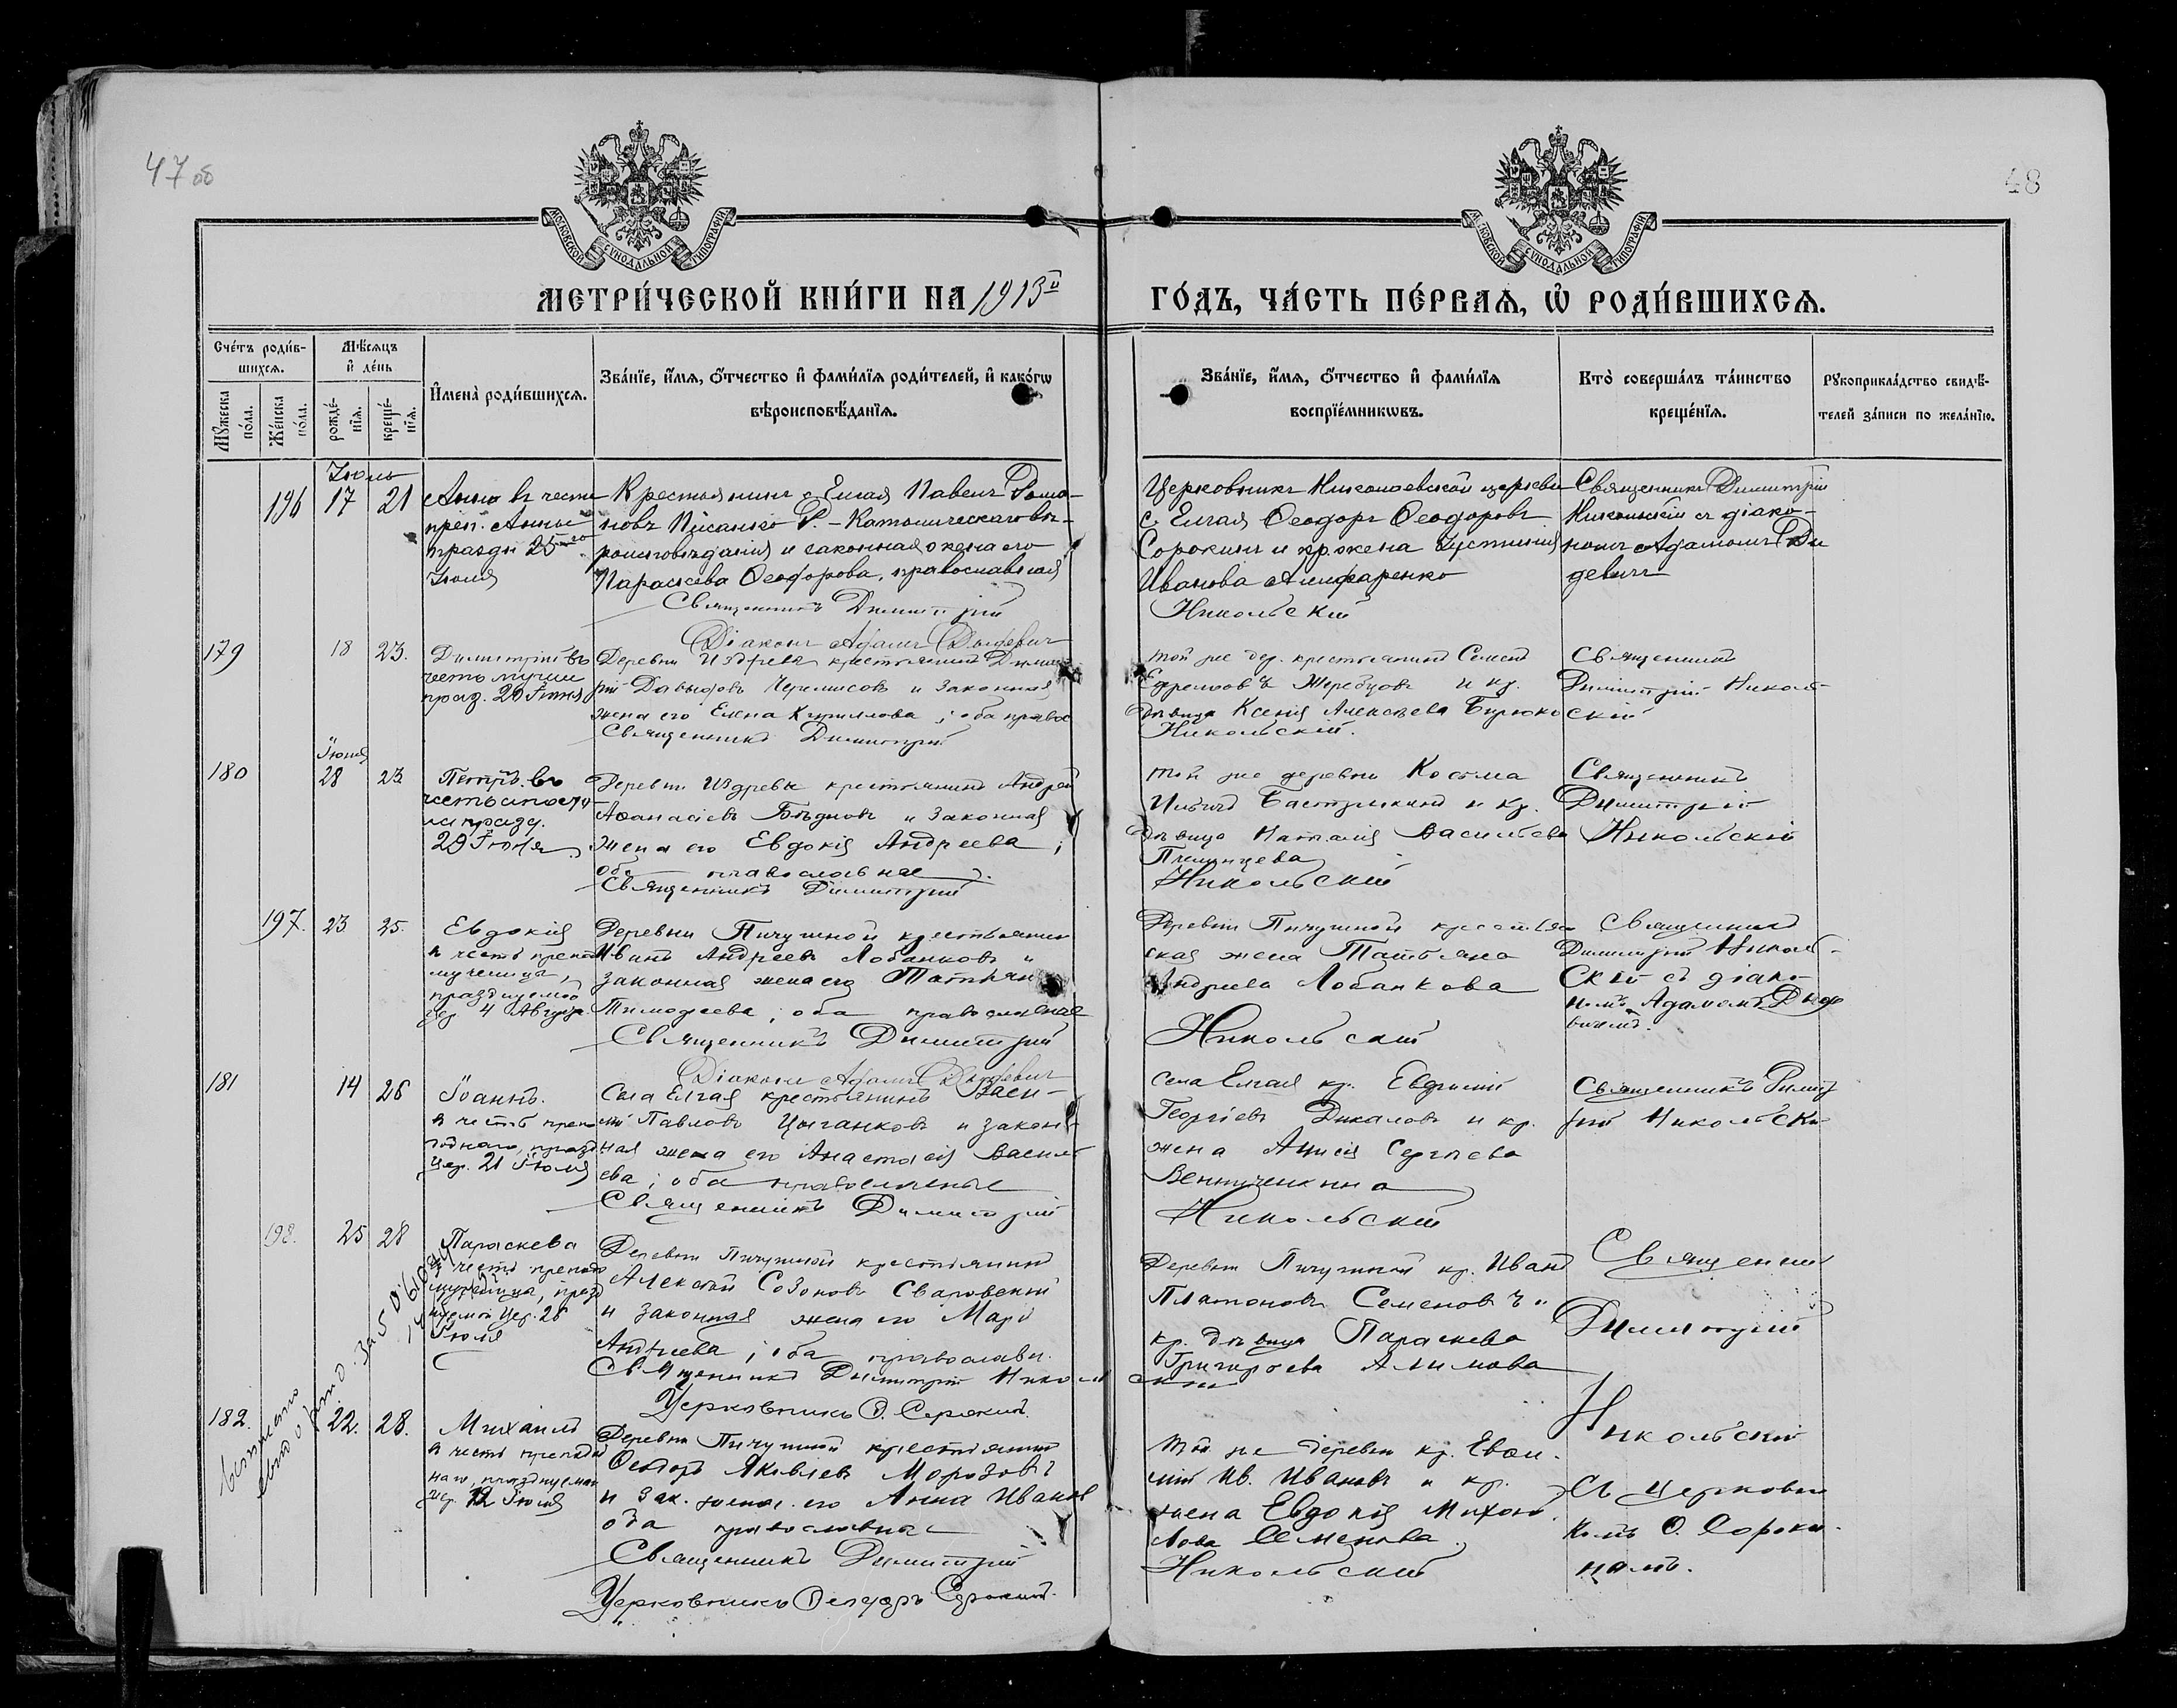 47 об
48
МОСКОВСКОЙ СѴНОДАЛЬНОЙ ТИПОГРАФІИ
МОСКОВСКОЙ СѴНОДАЛЬНОЙ ТИПОГРАФІИ
МЕТРИ́ЧЕСКОЙ КНИ́ГИ НА 1913й
ГО́ДЪ, ЧА́СТЬ ПЕ́РВАЯ, Ѡ҆ РОДИ́ВШИХСЯ.
Сче́тъ роди́в-
шихся.
Мѣ́сяцъ
и҆ де́нь
Мꙋ́жеска по́ла.
Же́нска по́ла.
рожде́-
нїя.
креще́-
нїя.
И҆мена̀ роди́вшихся.
Зва́нїе, и҆́мя, ѻ҆́тчество и҆ фами́лїя роди́телей, и҆ како́гѡ
вѣроисповѣ́данїя.
Зва́нїе, и҆́мя, ѻ҆́тчество и҆ фами́лїя
воспрїе́мникѡвъ.
Кто̀ соверша́лъ та́инство
креще́нїя.
Рꙋкоприкла́дство свидѣ́-
телей за́писи по жела́нїю.
Іюль
196 17 21
Анна въ честь
преп. Анны
праздн 25го
Іюля
Крестьянинъ с. Елгая Павелъ Рома-
новъ Писанко Р.-Католическаго вѣ-
роисповѣданія и законная жена его
Параскева Ѳеодорова, православная
Священникъ Димитрій
Діаконъ Адамъ
Церковникъ Николаевской церкви
с. Елгая Ѳеодоръ Ѳеодоровъ
Сорокинъ и кр. жена Іустинія
Иванова
Никольскій
Священникъ Димитрій
Никольскій съ діако-
номъ Адамомъ
девичъ
179 18 23.
Димитрій въ
честь
праз. Іюня
Деревни Издревя крестьянинъ Димит-
рій Давыдовъ Черемисовъ и законная
жена его Елена Кириллова; оба правос
Священникъ Димитрій
той же дер. крестьянинъ Семенъ
Ефремовъ Жеребцовъ и кр.
дѣвица Ксенія Алексѣева
Никольскій.
Священникъ
Димитрій Николь-
скій
Іюня
180 28 23
Петръ въ
честь апосто-
ла празд.
29 Іюня.
Деревни Издревя крестьянинъ Андрей
Аѳанасіевъ Бѣдновъ и законная
жена его Евдокія Андреева;
оба православные.
Священникъ Димитрій
той же деревни Косьма
Ильинъ Бастрыкинъ и кр.
дѣвица Наталія Васильева
Никольскій
Священникъ
Димитрій
Никольскій
197. 23 25.
Евдокія
в честь препо
мученицы,
празднуемой
цер. 4 Август.
Деревни Пичугиной крестьянин
Иванъ Андреевъ Лобанковъ и
законная жена его Татьяна
Тимофеева; оба православные
Священникъ Димитрій
Діаконъ Адамъ
Деревни Пичугиной крестьян
ская жена Татьяна
Андреева Лобанкова
Никольскій
Священникъ
Димитрій Николь-
скій съ діако-
номъ Адамомъ
вичемъ.
181 14 26
Іоаннъ.
в честь препо
добнаго, празд
цер. 21 Іюля
Села Елгая крестьянинъ Васи-
лій Павловъ Цыганковъ и закон-
ная жена его Анастасія Василь
ева; оба православные
Священникъ Димитрій
Села Елгая кр. Евдокимъ
Георгіевъ Дикаловъ и кр.
жена Анисія Сергѣева
Никольскій
Священникъ Димит
рій Никольскій
198. 25 28
Параскева
в честь препод
мученицы, празд
нуемой цер. 26
Іюля
Деревни Пичугиной крестьянинъ
Алексѣй Созоновъ Сваровскій
и законная жена его Марі
Андреева; оба православн.
Священникъ Димитрій Николь
скій
Церковникъ Ѳ. Сорокинъ.
Деревни Пичугиной кр. Иванъ
Платоновъ Семеновъ и
кр. дѣвица Параскева
Григорьева Алимова
Священник
Димитрій
Никольскій
182. 22. 28.
Михаилъ
в честь преподоб
наго, празднуемаго
цер. 12 Іюля
Деревни Пичугиной крестьянинъ
Ѳеодоръ Яковлевъ Морозовъ
и зак. жена его Анна Иванов
оба православные
Священникъ Димитрій
Церковникъ Ѳеодоръ Сорокинъ.
той же деревни кр. Евѳи-
мій Ив. Ивановъ и кр.
жена Евдокія Михаи
лова Семенова.
Никольскій
Съ церковни
комъ Ѳ. Сороки-
нымъ.